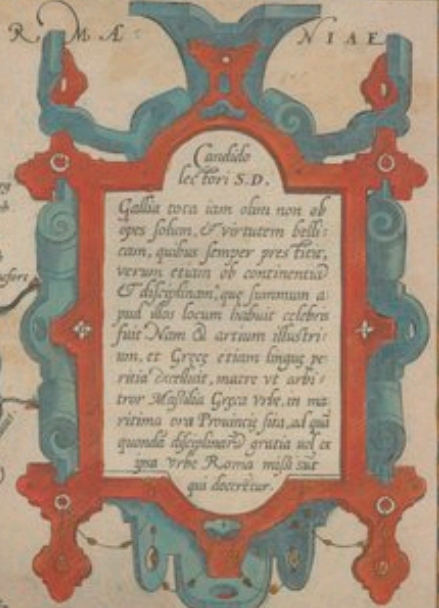 R M Æ N I A E
Candido
lectori S.D.
Gallia tota iam olim non ob
opes solum, & virtutem belli:
cam, quibus semper prestitit,
verum etiam ob continentiā
& disciplinam, que summum a:
pud illos locum habuit celebris
fuit Nam & artium illustri:
um, et Grecę etiam linguę pe:
ritia excelluit, matre vt arbi:
tror Massilia Gręca vrbe, in ma
ritima ora Prouincię sita, ad quā
quondā disciplinarū gratia uel ex
ipsa vrbe Roma missi sūt
qui docerētur.